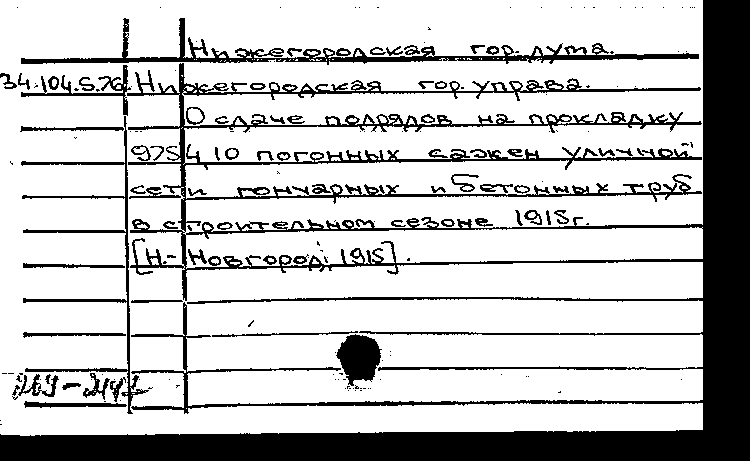 Нижегородская гор. дума.
34.104.5.76. Нижегородская гор. управа.
О сдаче подрядов на прокладку
9754,10 погонных сажен уличной
сети гончарных и бетонных труб
в строительном сезоне 1915г.
[Н.-Новгород, 1915].